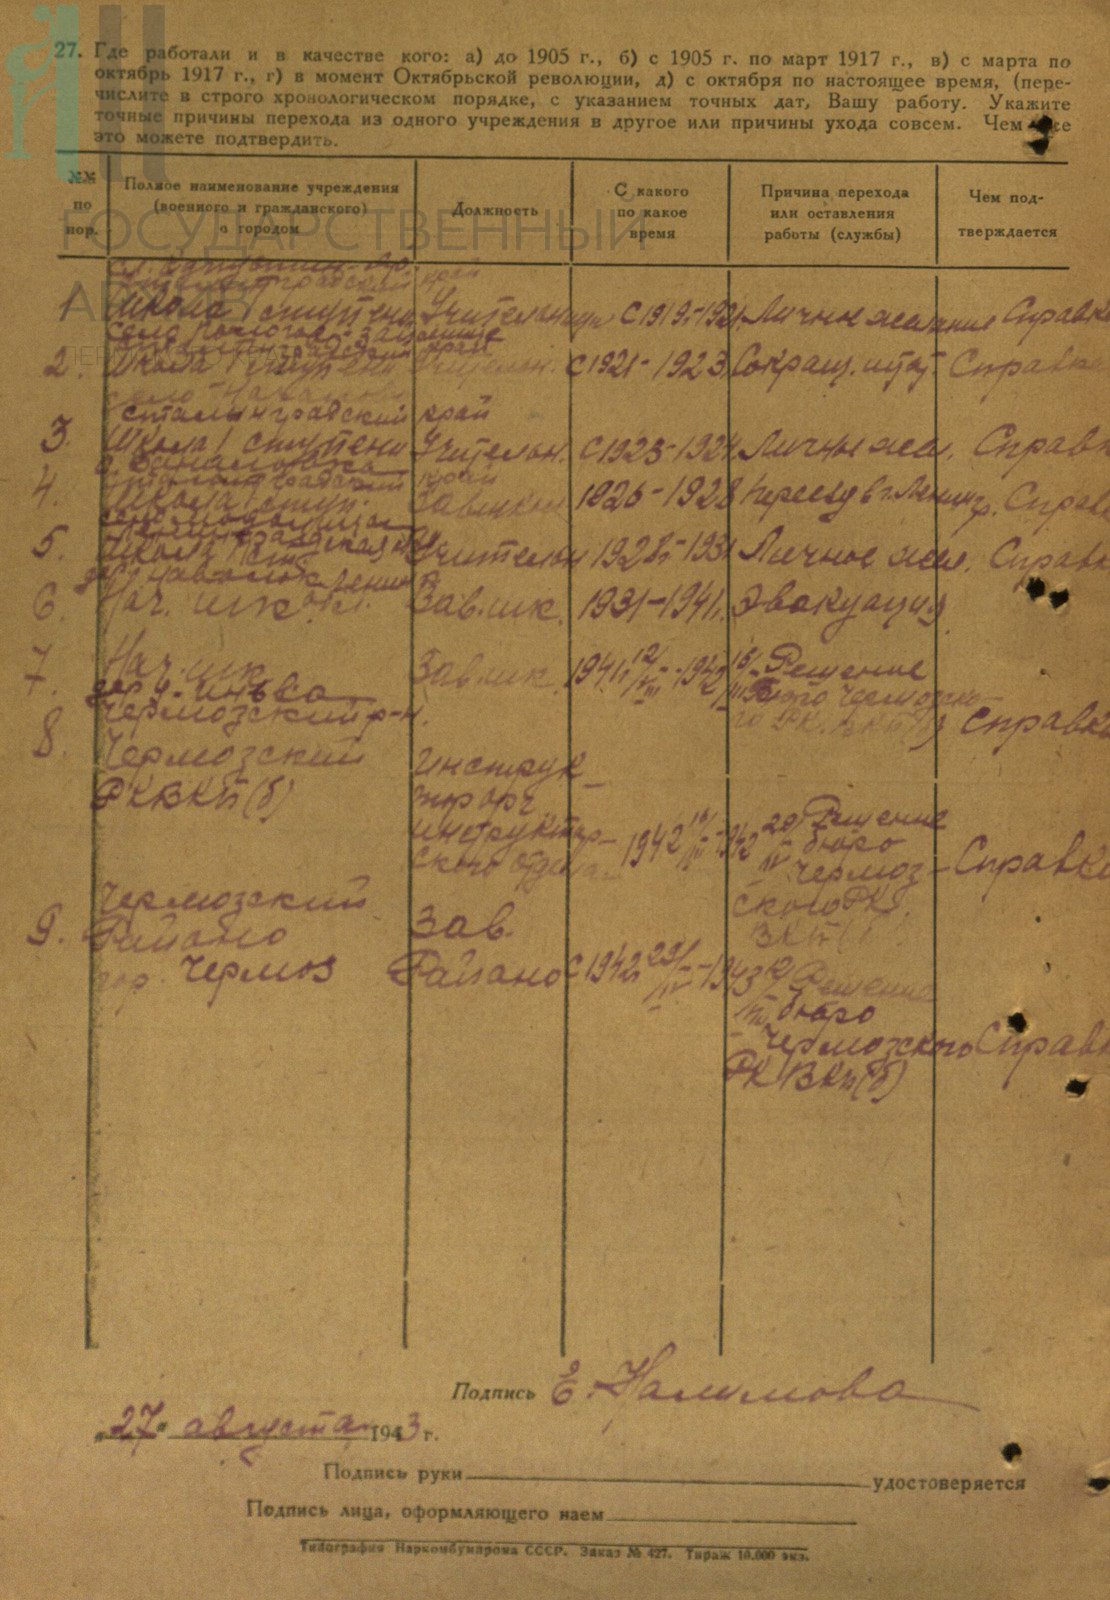 27. Где работали и в качестве кого: а) до 1905 г., б) с 1905 г. по март 1917 г., в) с марта по
октябрь 1917 г., г) в момент Октябрьской революции, д) с октября по настоящее время, (пере-
числите в строго хронологическом порядке, с указанием точных дат, Вашу работу. Укажите
точные причины перехода из одного учреждения в другое или причины ухода совсем. Чем
это можете подтвердить.
№№ по пор.
Полное наименование учреждения (военного и гражданского) с городом
Должность
С какого по какое время
Причина перехода или оставления работы (службы)
Чем под- тверждается
ГОСУДАРСТВЕННЫЙ
АРХИВ
край
1. Школа I ступени Учительница с 1919-1921 Личное желание Справка
село
край
2. Школа I ступени Учительн. с 1921-1923 Сокращ. штат Справка
село
Сталинградский край
3. Школа I ступени Учительн. с 1923-1924 Личн. жел. Справк
Сталинградский край
4. Школа I ступ. Завшкол 1926-1928 Переезд в г. Ленингр. Справ
село
5. Школа Учительн 1928-1931 Личное жел. Справк
6. Нач. школ. Зав.шк. 1931-1941г. Эвакуация
7. Нач. шк. Завшк. 1941 12/VIII-1942 15/III Решение
дер. У-Иньва бюро Чермозско-
Чермозский р-н. го РК. ВКП(б) Справка
8. Чермозский Инструк-
РКВКП(б) тор орг
инструктор-
ского отдела 1942 15/III-1942 20/IV Решение
бюро
Чермоз-
ского РК
ВКП( Справка
Чермозский
9. Районо Зав.
гор. Чермоз Районо с 1942 23/IV-1943 Решение
бюро
Чермозского Справк
РКВКП(б)
Подпись Е. Налимова
„27" августа 1943 г.
Подпись руки удостоверяется
Подпись лица, оформляющего наем
Типография Наркомбумпрома СССР. Заказ № 427. Тираж 10.000 экз.